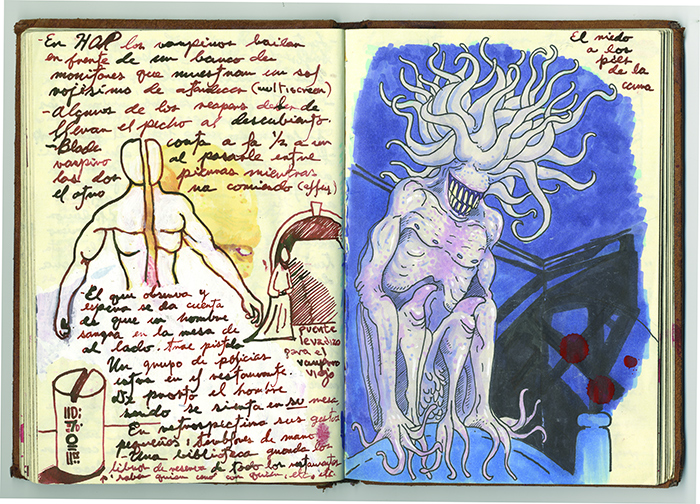 -En HOP los vampiros bailan
en frente de un banco de
monitores que muestran un sol
rojísimo de atardecer (multiscreen)
-Algunos de los reapers deben de
llevan el pecho al descubierto.
-Blade corta a la 1/2 a un
vampiro al pasarle entre
las dos piernas mientras
el otro va corriendo (effex)
-El que observa y
espera se da cuenta
de que un hombre
sangra en la mesa de
al lado. trae pistola
Un grupo de policías
estan en el restaurante.
De pronto el hombre
se sienta en su mesa
En retrospectiva sus gestos
pequeños, temblores de mano
-Una biblioteca guarda los
libros de reserva de todo los restaurantes
p' saber quien comió con quien, etc, etc.
puente
levadizo
para el
vampiro
viejo
El miedo
a los
pies
de la
cama